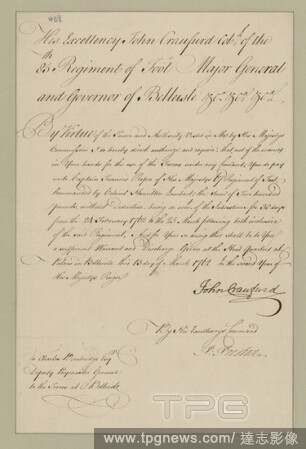 His Excellency John Craufurd Esqr. of the
th
85 Regiment of Foot Major General
and Governor of Belleisle &ca. &ca. &ca.
By Virtue of the Power and Authority Vested in Me by His Majestys
Commission I do hereby direct authorize and require, that out of the monies
in Your hands for the use of the Forces under my Command, You do pay
unto Captain Francis of His Majestys 67 Regiment of Foot
Commanded by Colonel Hamilton Lambert, the Sum of
pounds, without Deduction, being on acct. of the Subsistence for
from the 24 February 1762 to the 24 March following both inclusive
of the said Regiment, And for Your so doing this shall be to You
a sufficient Warrant and Discharge Given at the Head Quarters at
Palais in Belleisle this 13 day of March 1762 In the second Year of
His Majestys Reign
John Craufurd
By His Excellencys Command
To Charles Esqr.
Deputy Paymaster General
to the Forces at Belleisle
TPG
www.tpgnews.com / 達志影像